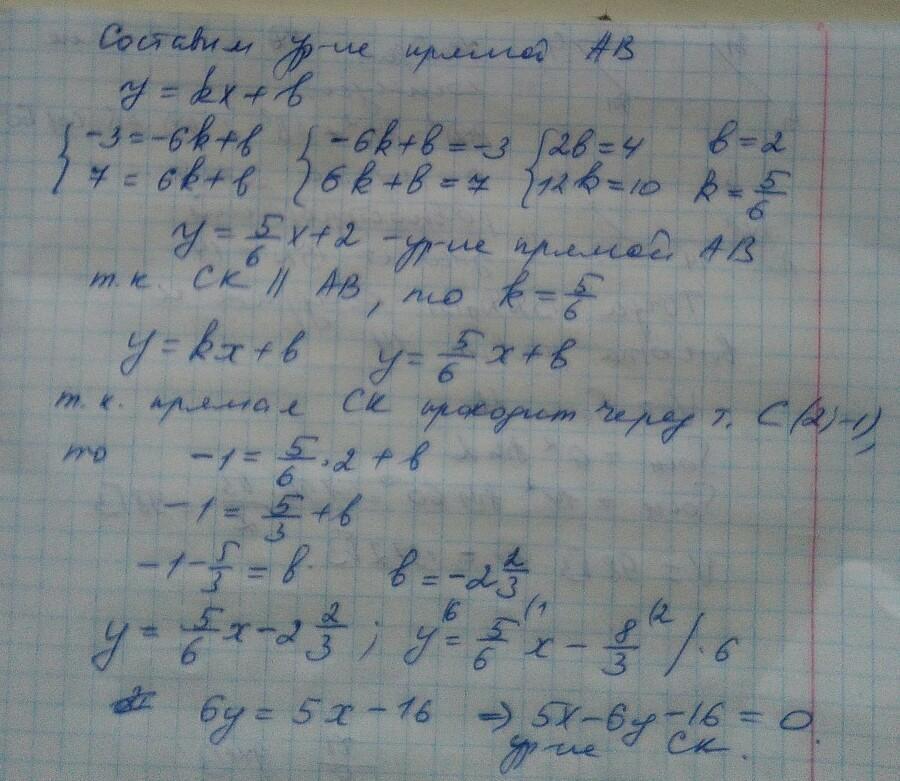 Составим ур-ие прямой АВ
y = kx + b
{ -3 = -6k + b { -6k + b = -3 { 2b = 4 b = 2
7 = 6k + b 6k + b = 7 12k = 10 k = 5/6
y = 5/6 x + 2 - ур-ие прямой АВ
т.к. СК || АВ, то k = 5/6
y = kx + b y = 5/6 x + b
т.к. прямая СК проходит через т. С(2; -1),
то -1 = 5/6 · 2 + b
-1 = 5/3 + b
-1 - 5/3 = b b = -2 2/3
y = 5/6 x - 2 2/3 ; y (6 = 5/6 (1 x - 8/3 (2 / · 6
6y = 5x - 16 => 5x - 6y - 16 = 0.
ур-ие СК.